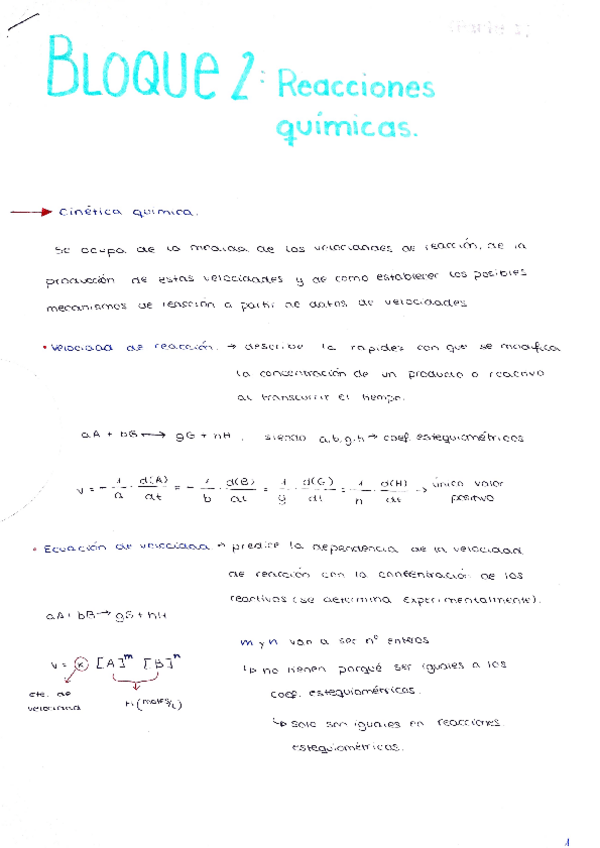 BLOQUE 2: Reacciones
químicas.
→ Cinética química.
Se ocupa de la medida de las velocidades de reacción, de la
producción de estas velocidades y de como establecer los posibles
mecanismos de reacción a partir de datos de velocidades
• Velocidad de reacción → describe la rapidez con que se modifica
la concentración de un producto o reactivo
al transcurrir el tiempo.
aA + bB ⟷ gG + hH, siendo a,b,g,h → coef. estequiométricos
v = - 1/a · d(A)/dt = - 1/b · d(B)/dt = 1/g · d(G)/dt = 1/h · d(H)/dt → único valor
positivo
• Ecuación de velocidad → predice la dependencia de la velocidad
de reacción con la concentración de los
reactivos (se determina experimentalmente).
aA + bB → gG + hH
m y n van a ser nº enteros
v = K [A]^m [B]^n
↳ no tienen porqué ser iguales a los
cte. de
coef. estequiométricos.
velocidad
M (moles/L)
↳ solo son iguales en reacciones
estequiométricas.
1